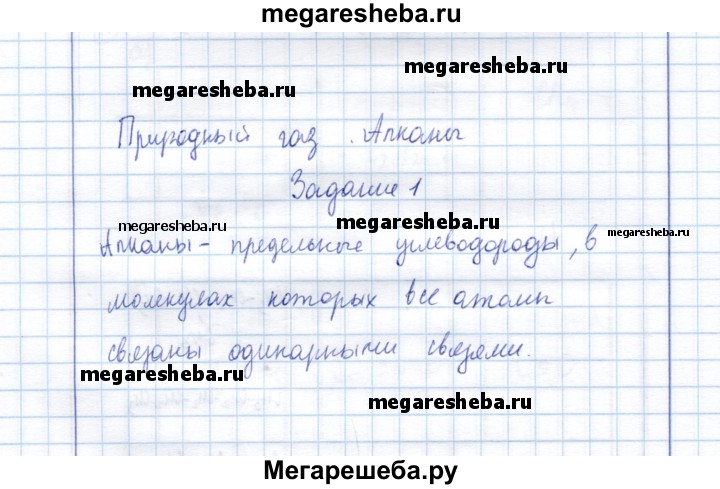 megaresheba.ru
megaresheba.ru
megaresheba.ru
Природный газ. Алканы
Задание 1
megaresheba.ru
megaresheba.ru
megaresheba.ru
Алканы - предельные углеводороды, в
молекулах которых все атомы
связаны одинарными связями.
megaresheba.ru
megaresheba.ru
Мегарешеба.ру